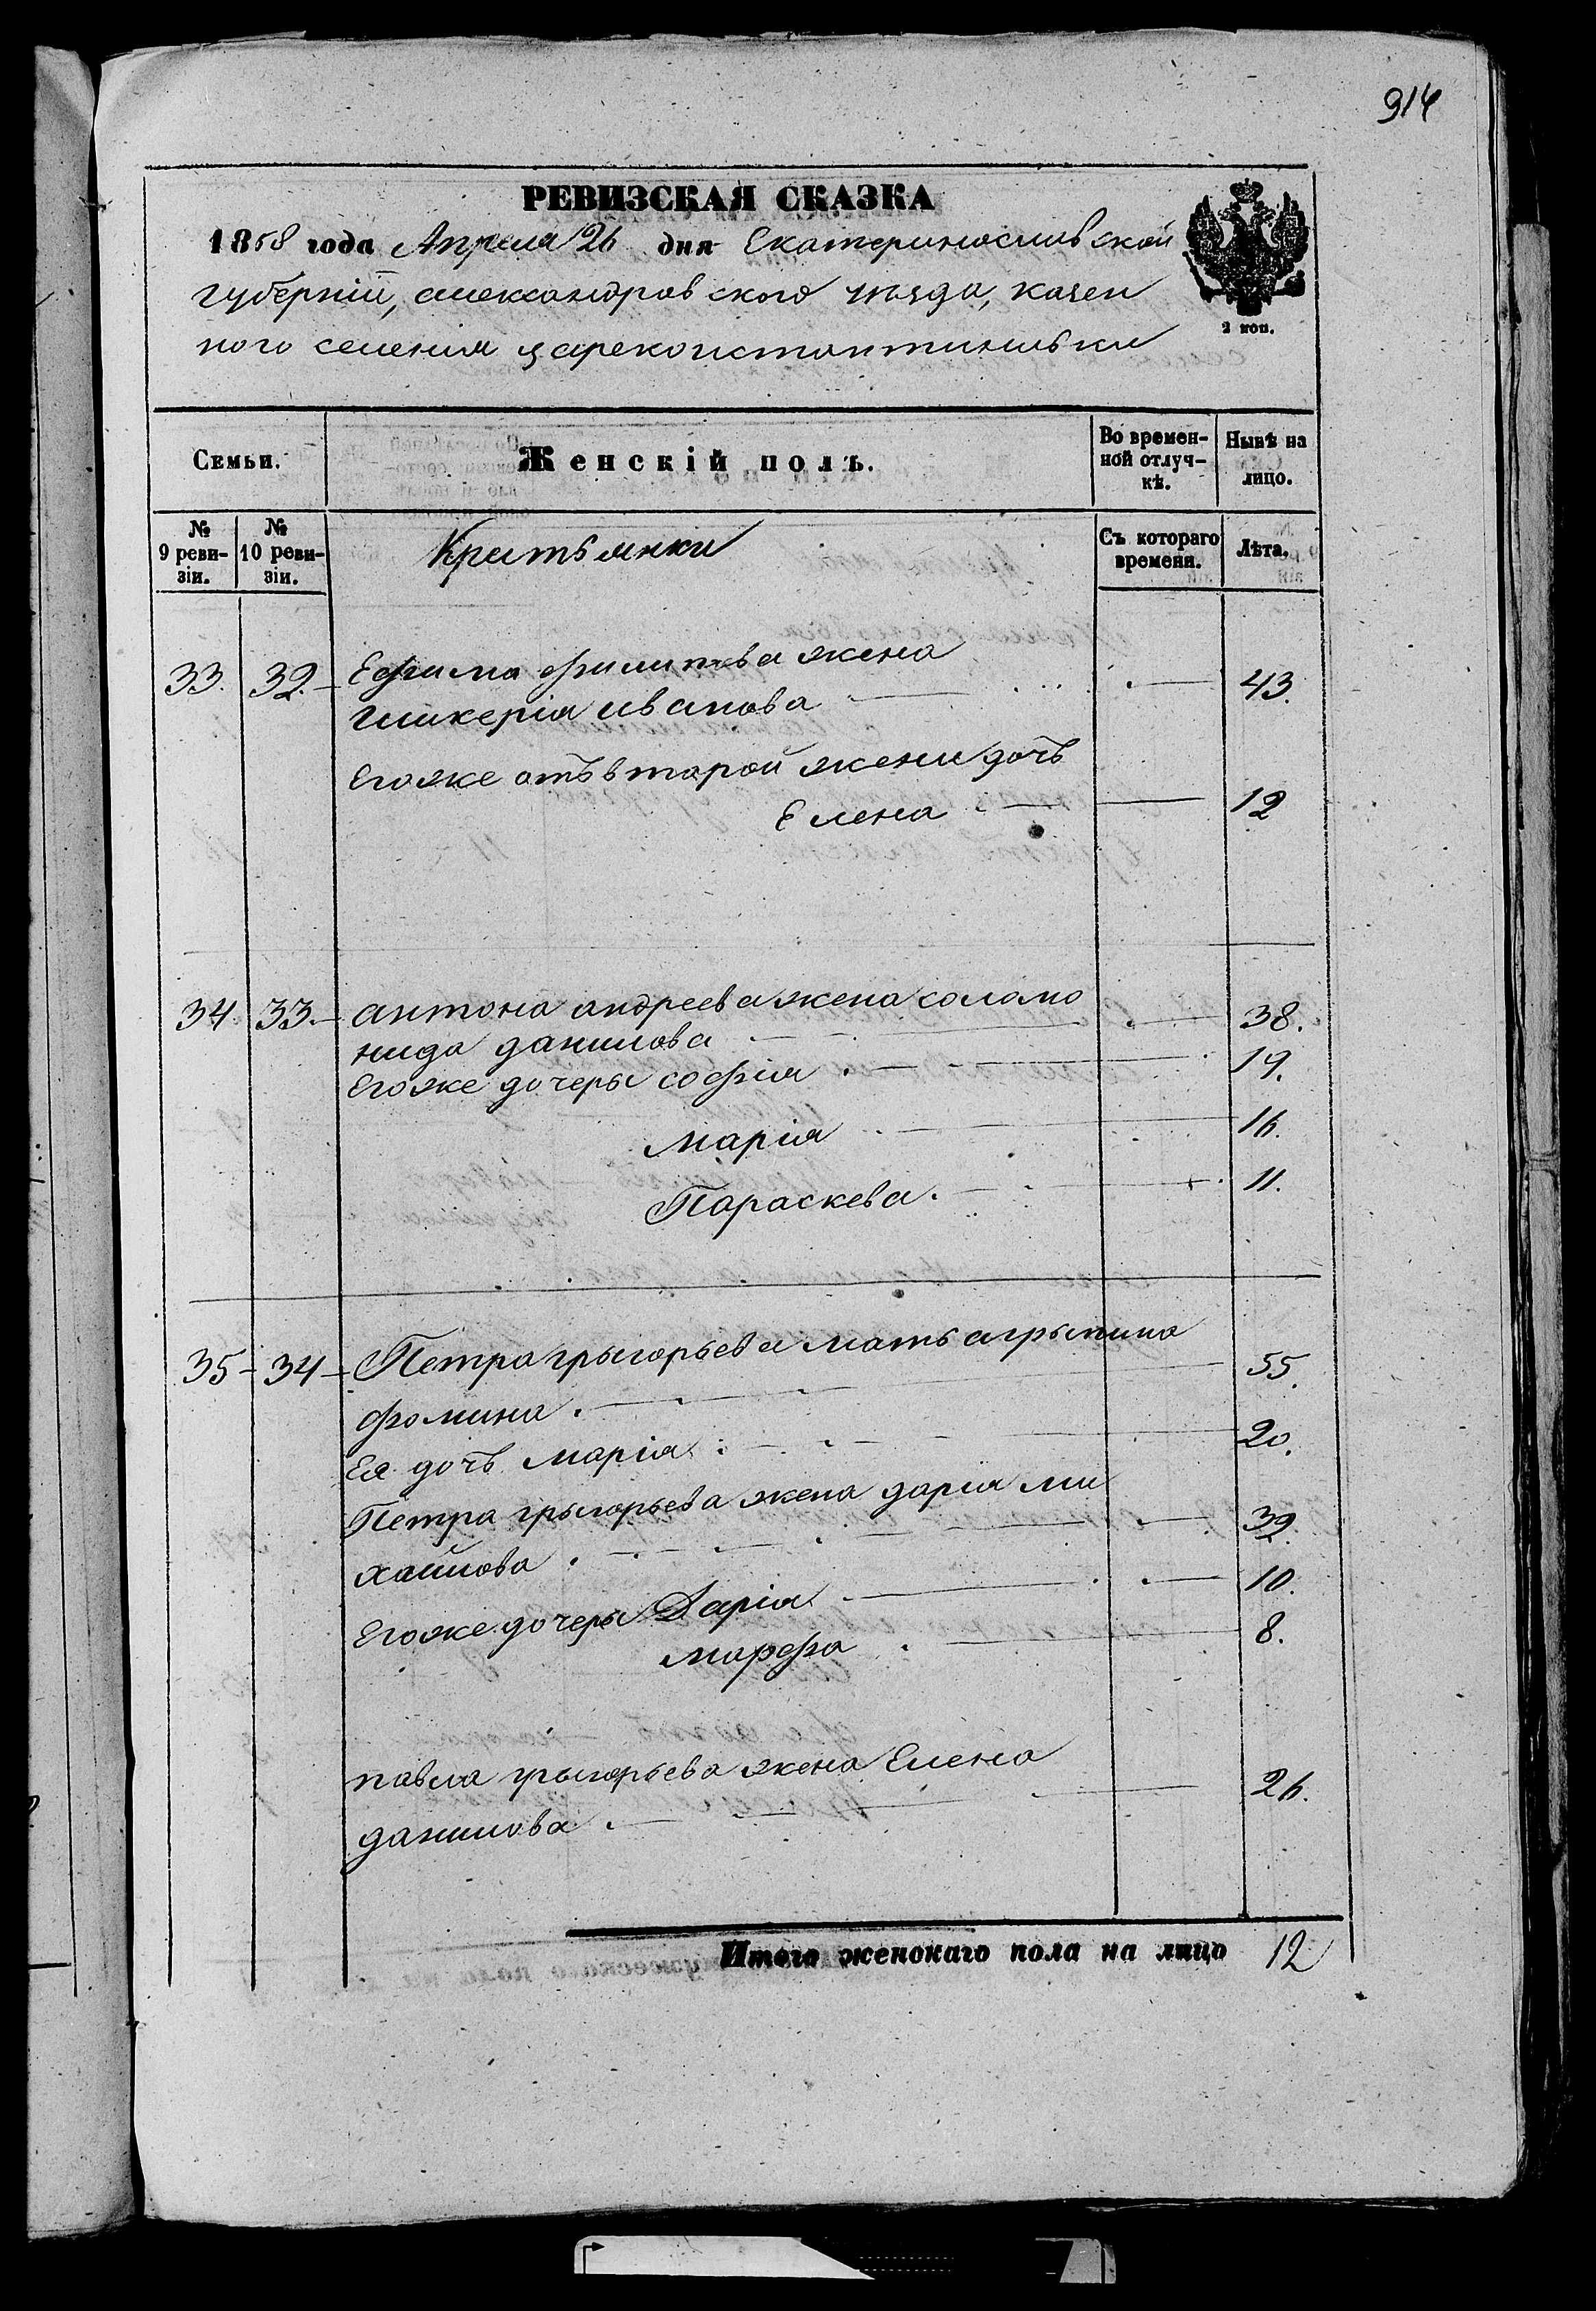 914
РЕВИЗСКАЯ СКАЗКА
1858 года Апреля 26 дня Екатеринославской
губерніи, александровского уѣзда, казен
ного селения цареконстантиновки
2 коп.
Семьи. Женскій полъ. Во времен-ной отлуч-кѣ. Нынѣ на лицо.
№ 9 реви-зіи. № 10 реви-зіи. Кретьянки Съ котораго времени. Лѣта.
33. 32. Ефима филипева жена
гликерія иванова 43.
Егоже отъ второй жени дочъ
Елена 12
34. 33. антона андреева жена соломо
нида данилова 38.
Егоже дочеры софія 19.
марія 16.
Параскева. 11.
35 - 34 Петра грыгорьева мать агрыпина
фомина. 55.
Ея дочъ марія 20.
Петра грыгорьева жена дария ми
хайлова 39.
Егоже дочеры Дарія 10.
марфа 8.
павла грыгорьева жена Елена
данилова 26.
Итого женскаго пола на лицо 12